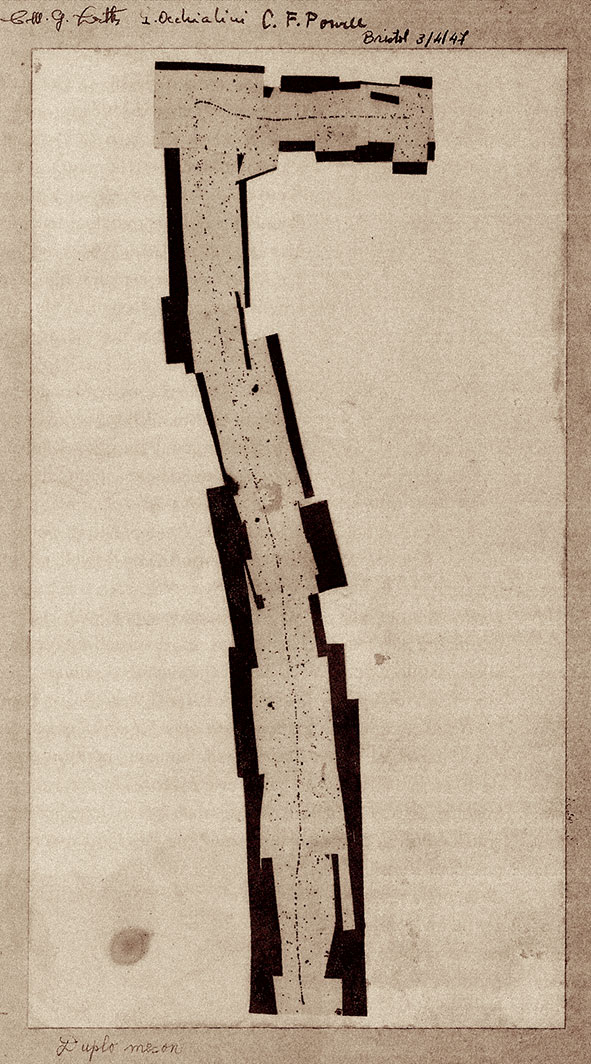 C.M.G. Lattes G. Occhialini C. F. Powell
Bristol 3/4/47
Duplo meson